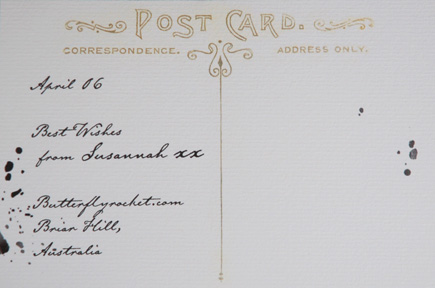 POST CARD.
CORRESPONDENCE. ADDRESS ONLY.
April 06
Best Wishes
from Susannah xx
Butterflyrocket.com
Briar Hill,
Australia